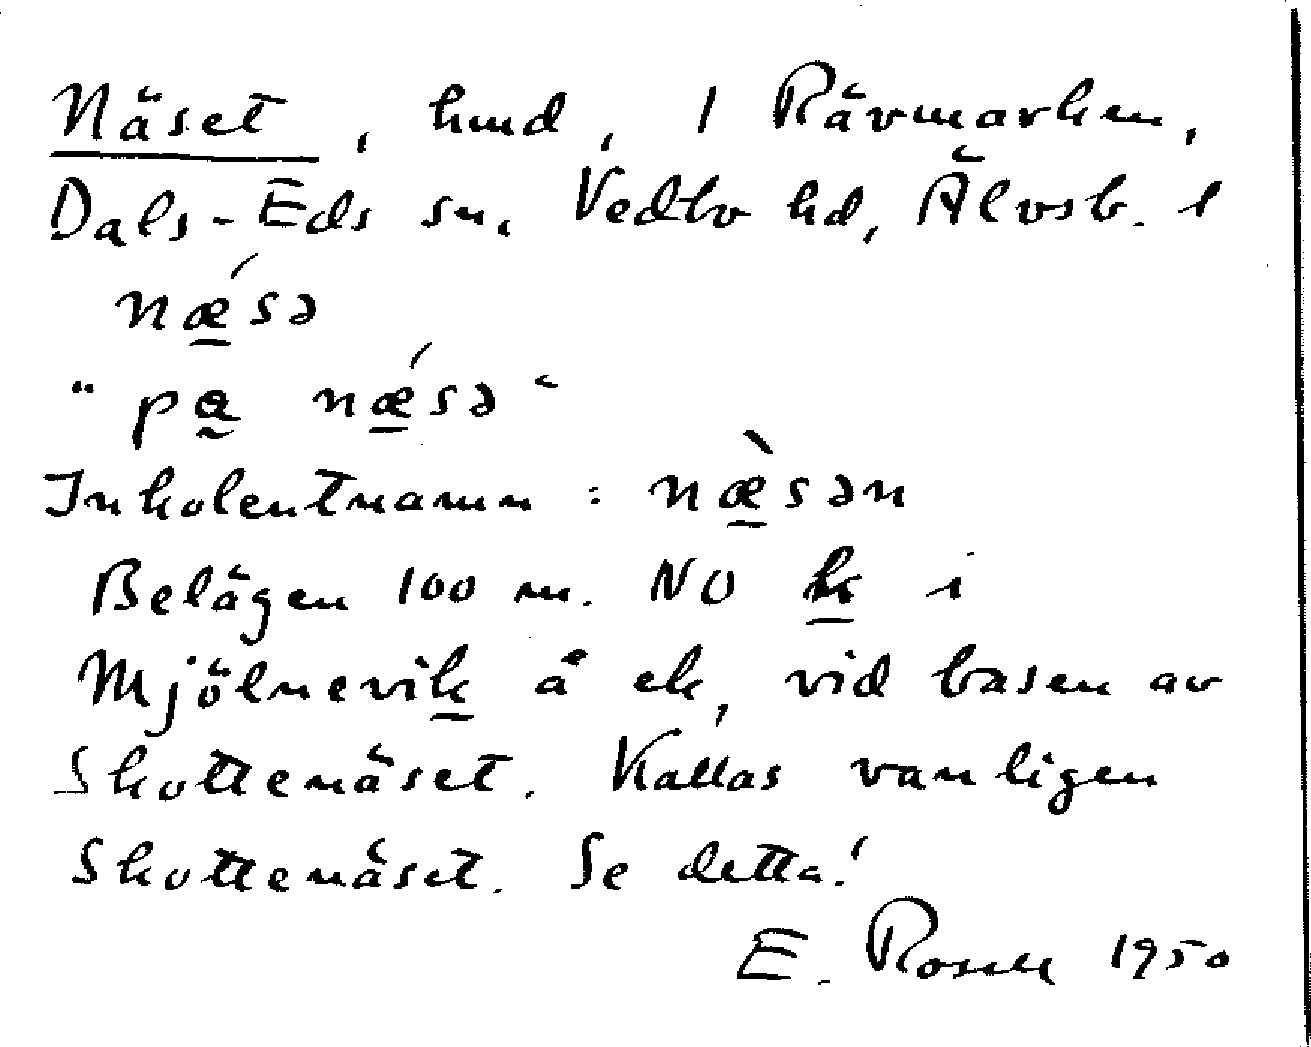 Näset, hmd, i Rävmarken,
Dals-Eds sn, Vedbo hd, Älvsb. l
nǽ̱sə
"pa̰ nǽ̱sə"
Inkolentnamn: næ̱̀sən
Belägen 100 m. NO k i
Mjölnevik å ek, vid basen av
Skottenäset. Kallas vanligen
Skottenäset. Se detta!
E. Rosell 1950